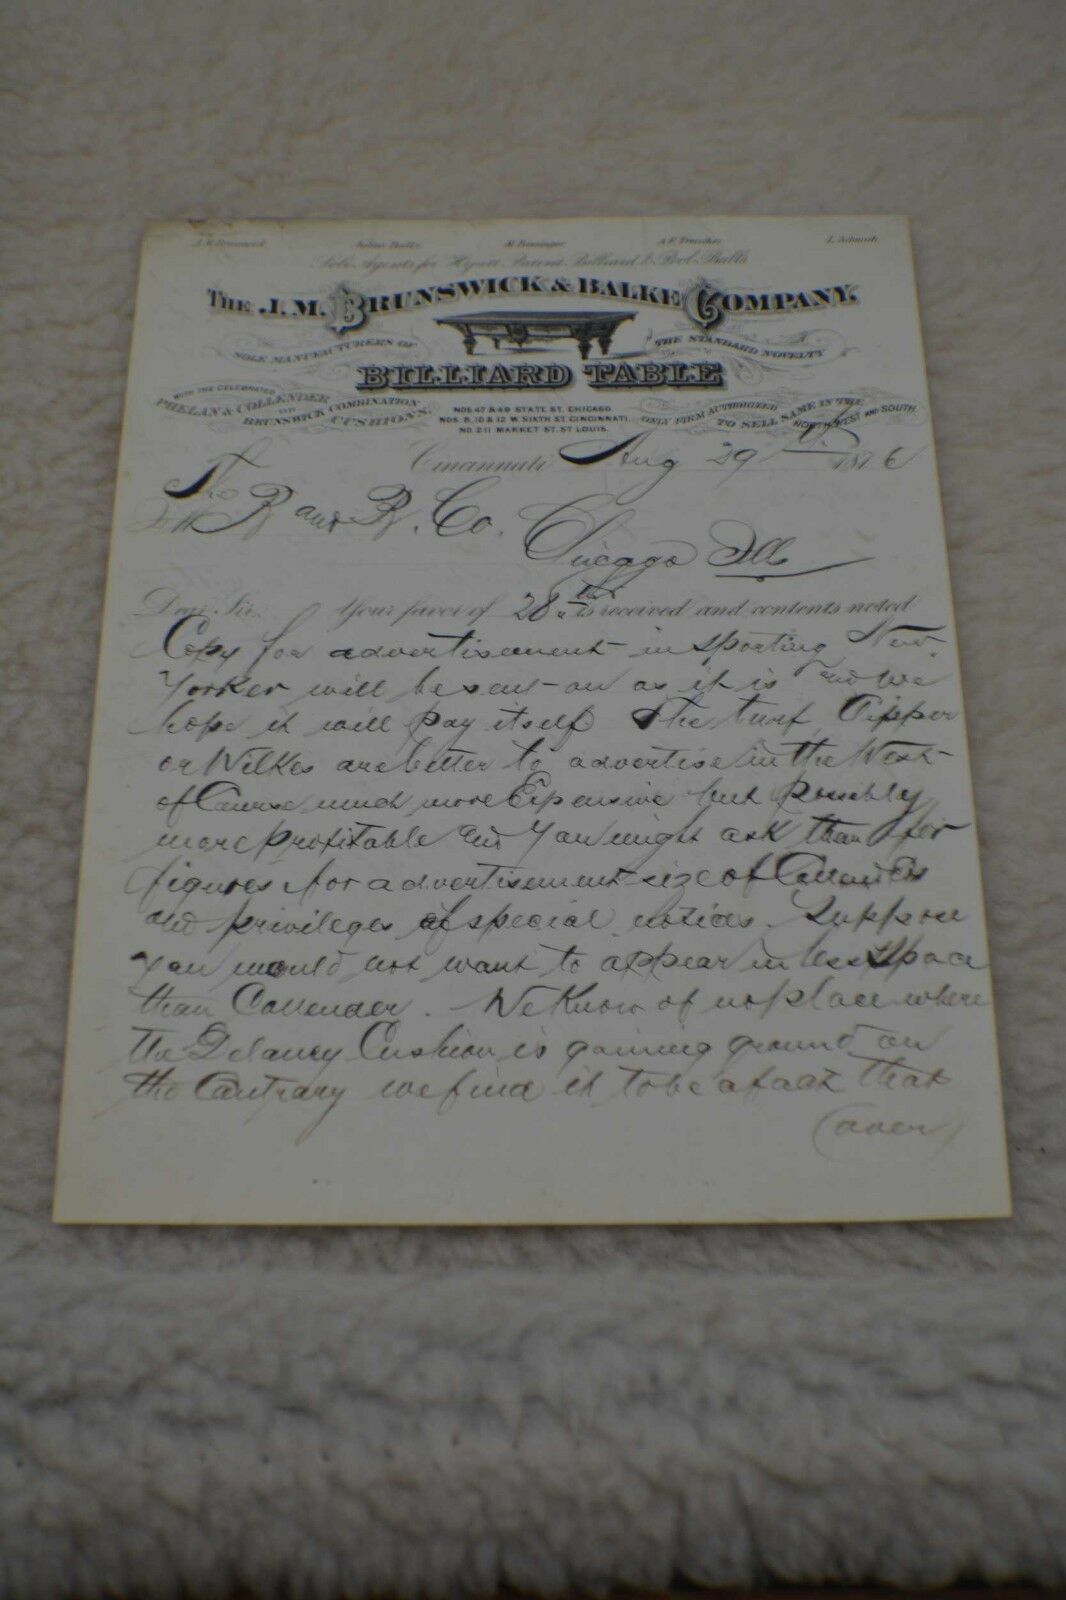 J. M. Brunswick Julius Balke M. Bensinger A. F. Troescher L. Schmidt
Sole Agents for Hyatt Patent Billiard & Pool Balls
THE J. M. BRUNSWICK & BALKE COMPANY.
SOLE MANUFACTURERS OF THE STANDARD NOVELTY
BILLIARD TABLE
WITH THE CELEBRATED
PHELAN & COLLENDER
OR
BRUNSWICK COMBINATION
CUSHIONS.
NOS. 47 & 49 STATE ST. CHICAGO.
NOS. 8, 10 & 12 W. SIXTH ST. CINCINNATI.
NO. 211 MARKET ST. ST LOUIS.
ONLY FIRM AUTHORIZED
TO SELL SAME IN THE
NORTH, WEST AND SOUTH.
Cincinnati Aug 29 1876
The B and B. Co.
Chicago Ills
Dear Sir: Your favor of 28th is received and contents noted
Copy for advertisement in sporting New
Yorker will be sent on as it is and we
hope it will pay itself The turf, Clipper
or Wilkes are better to advertise in the West
of Course much more Expensive but possibly
more profitable and You might ask them for
figures for advertisement size of Collenders
and privileges of special notices. Suppose
you would not want to appear in less space
than Collender. We Know of no place where
the Delaney Cushion is gaining ground on
the Contrary we find it to be a fact that
(over)